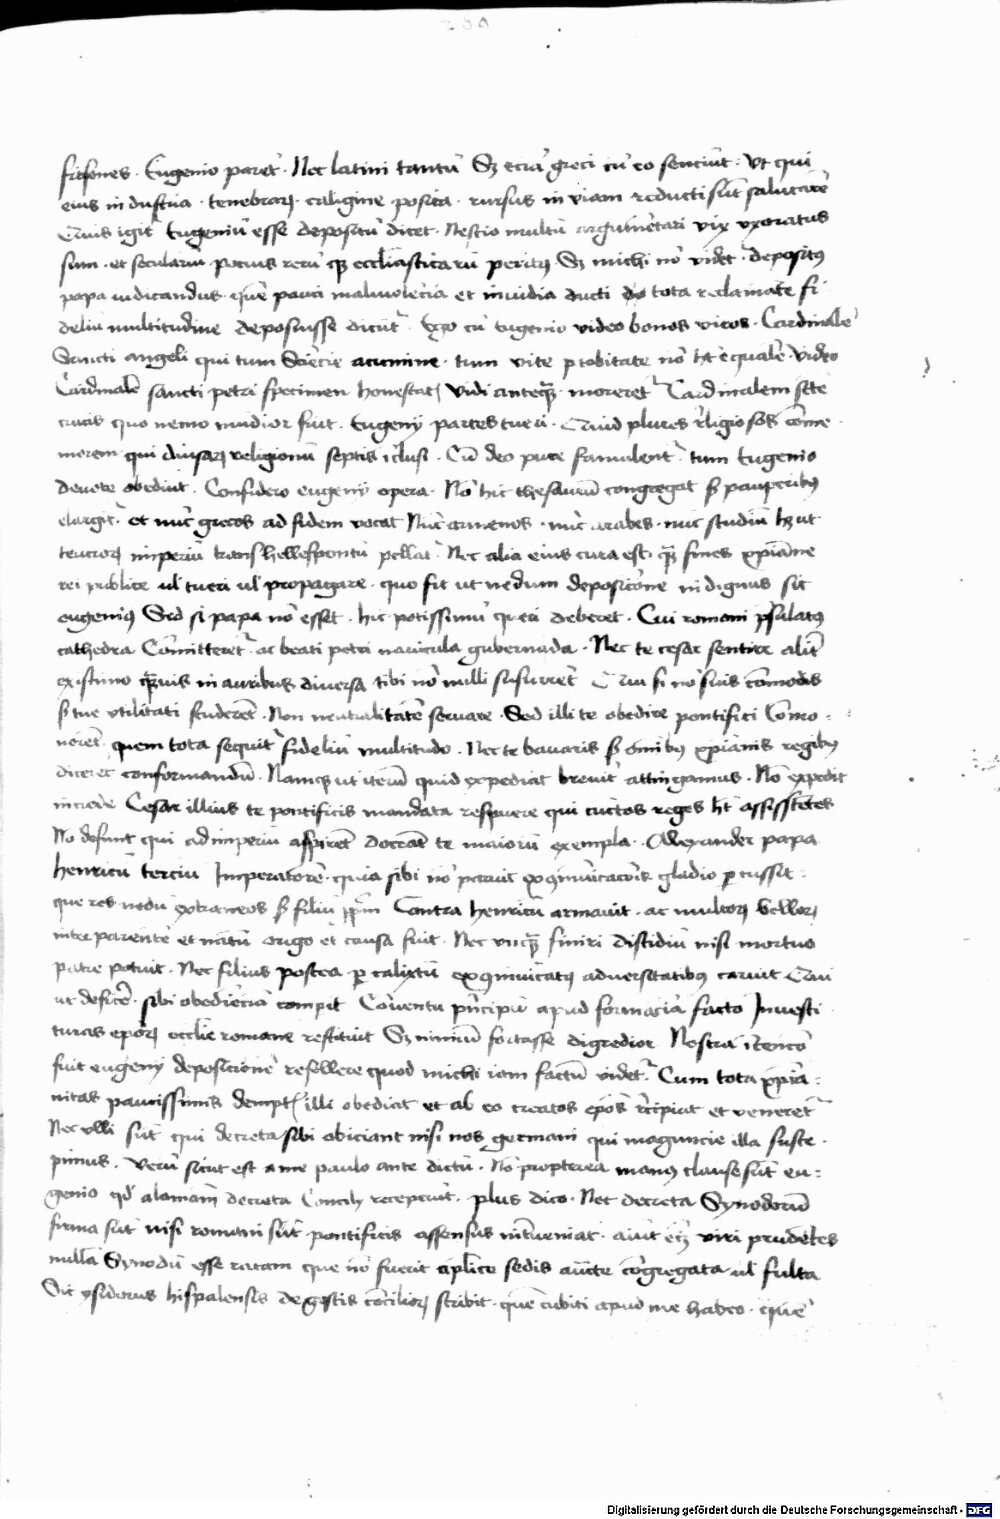 289
frisones. Eugenio paret. Nec latini tantū Sʒ eciā greci cū eo senciūt. Vt qui
eius industria. tenebrarꝝ. caligine posita. rursus in viam reducti sūt salutarē
Quis igit̄ Eugeniū esse depositū dicet. Nescio multū argumētari vix vxoratus
sum. et seculariū pocius rerū qʒ eccl̄iasticarū peritꝰ Sʒ michi nō videt᷑ depositꝰ
papa iudicandus. quē pauci malivolēcia et invidia ducti tota reclamāte fi
deliū multitudine deposuisse dicūt᷑. Ego cū Eugenio video bonos viros. Cardinalē
Sancti angeli qui tum Sciēcie acumine. tum vite probitate nō hꝫ equalē. Video
Cardinalē sancti petri specimen honestatꝭ Vidi anteqꝫ moreret᷑ Cardinalem sc̄te
crucis quo nemo mūdior fuit. Eugenij partes tueri. Quid plures religiosos cōme
morem qui diuisarꝝ religionū septis īclusi. Cū deo pure famulent᷑. tum Eugenio
deuote obediūt. Considero eugenij opera. Nō hic thesaurū congregat sꝫ pauperibꝰ
elargit᷑. et nūc grecos ad fidem vocat Nūc armenos. nūc arabes. nūc studiū hꝫ ut
teucrorꝝ imperiū trans hellespontū pellat᷑. Nec alia eius cura est. qꝫ fines xp̄iane
rei publice ul̄ tueri ul̄ propagare. quo fit ut nedum deposicōne indignus sit
eugenius Sed si papa nō esset. hic potissimū queri deberet. Cui romani p̄sulatꝰ
cathedra Cōmitteret᷑. ac beati petri nauicula gubernāda. Nec te cesar sentire alit̄
existimo quis in auribus diuersa tibi nō nulli susurrēt Qui si nō suis cōmodis
sꝫ tue vtilitati studerēt. Non neutralitatē seruare. Sed illi te obedire pontifici Cōmo
nerēt. quem tota sequit᷑ fideliū multitudo. Nec te bauaris sꝫ om̄ibꝰ xp̄ianis regibꝰ
dicerēt conformandū. Namqꝫ ut iterū quid expediat breuit̄ attingamus. Nō expedit
Cesar illius te pontificis mandata respuere qui cūctos reges hꝫ assistētes
Nō desunt qui ad imperiū aspirēt Doceāt te maiorū exempla. Alexander papa
henricū terciū Imperatorē. quia sibi nō paruit excōmūicacōis gladio percussit.
que res nedū extraneos sꝫ filiū Contra henricū armauit. ac multorꝝ bellorꝝ
inter parentē et natū origo et causa fuit. Nec vnqꝫ finiri dissidiū nisi mortuo
patre potuit. Nec filius postea p̱ calixtū excōmūicatꝰ aduersitatibꝰ caruit Qui
ut deficē. sibi obediēciā cōmpit Cōuentu prīcipū apud formaciā facto Inuesti
turas ep̄orꝝ ecclīe romane restituit Sʒ nimiū fortasse digredior Nostra ītencō
fuit eugenij deposicionē refellere quod michi iam factū videt᷑. Cum tota xp̄ia-
nitas paucissimis demptꝭ illi obediat et ab eo creatos ep̄os recipiat et veneret᷑
Nec vlli sūt qui decreta sibi obiciant nisi nos germani qui maguncie illa susce
pimus. Verū sicut est a me paulo ante dictū. Nō propterea manꝰ clause sūt eu-
genio qd̄ alamani decreta Concilij receperūt. plus dico. Nec decreta Synodorū
firma sūt nisi romani sūt pontificis assensus interueniat. aiūt eīꝫ viri prudētes
nullā Synodū esse ratam que nō fuerit apl̄ice sedis auc̄te cōgregata ul̄ fulta
Sic ysidorus hispalensis de gestis cōciliorꝝ scribit. quē cubiti apud me habeo. quē
Digitalisierung gefördert durch die Deutsche Forschungsgemeinschaft - DFG